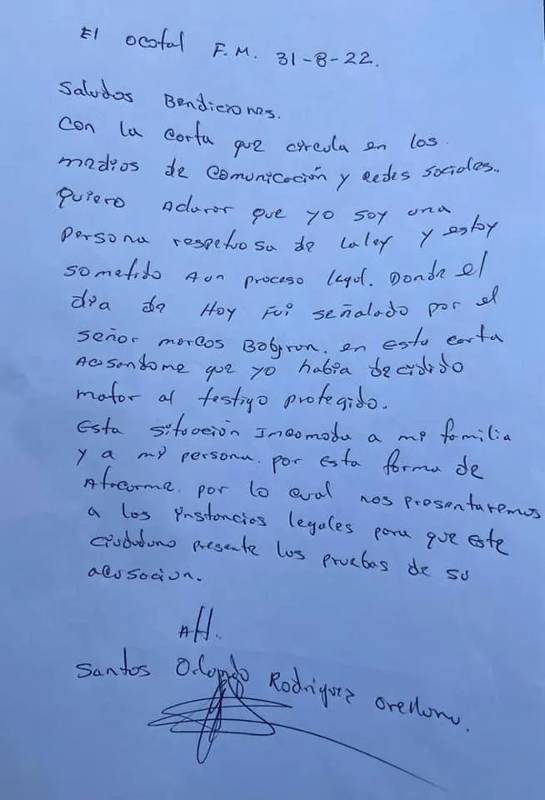 El ocotal F.M. 31-8-22.
Saludos Bendiciones.
Con la Carta que circula en los
medios de Comunicación y Redes Sociales.
Quiero Aclarar que yo soy una
persona respetuosa de la ley y estoy
sometido A un proceso legal. Donde el
dia de Hoy Fui señalado por el
señor marcos Bobyron. en esta carta
Acusandome que yo habia decidido
matar al testigo protegido.
Esta situación Incomoda a mi familia
y a mi persona. por esta forma de
Atacarme. por lo cual nos presentaremos
a los instancias legales para que este
ciudadano presente las pruebas de su
acusacion.
Att.
Santos Orlando Rodriguez Orellana.